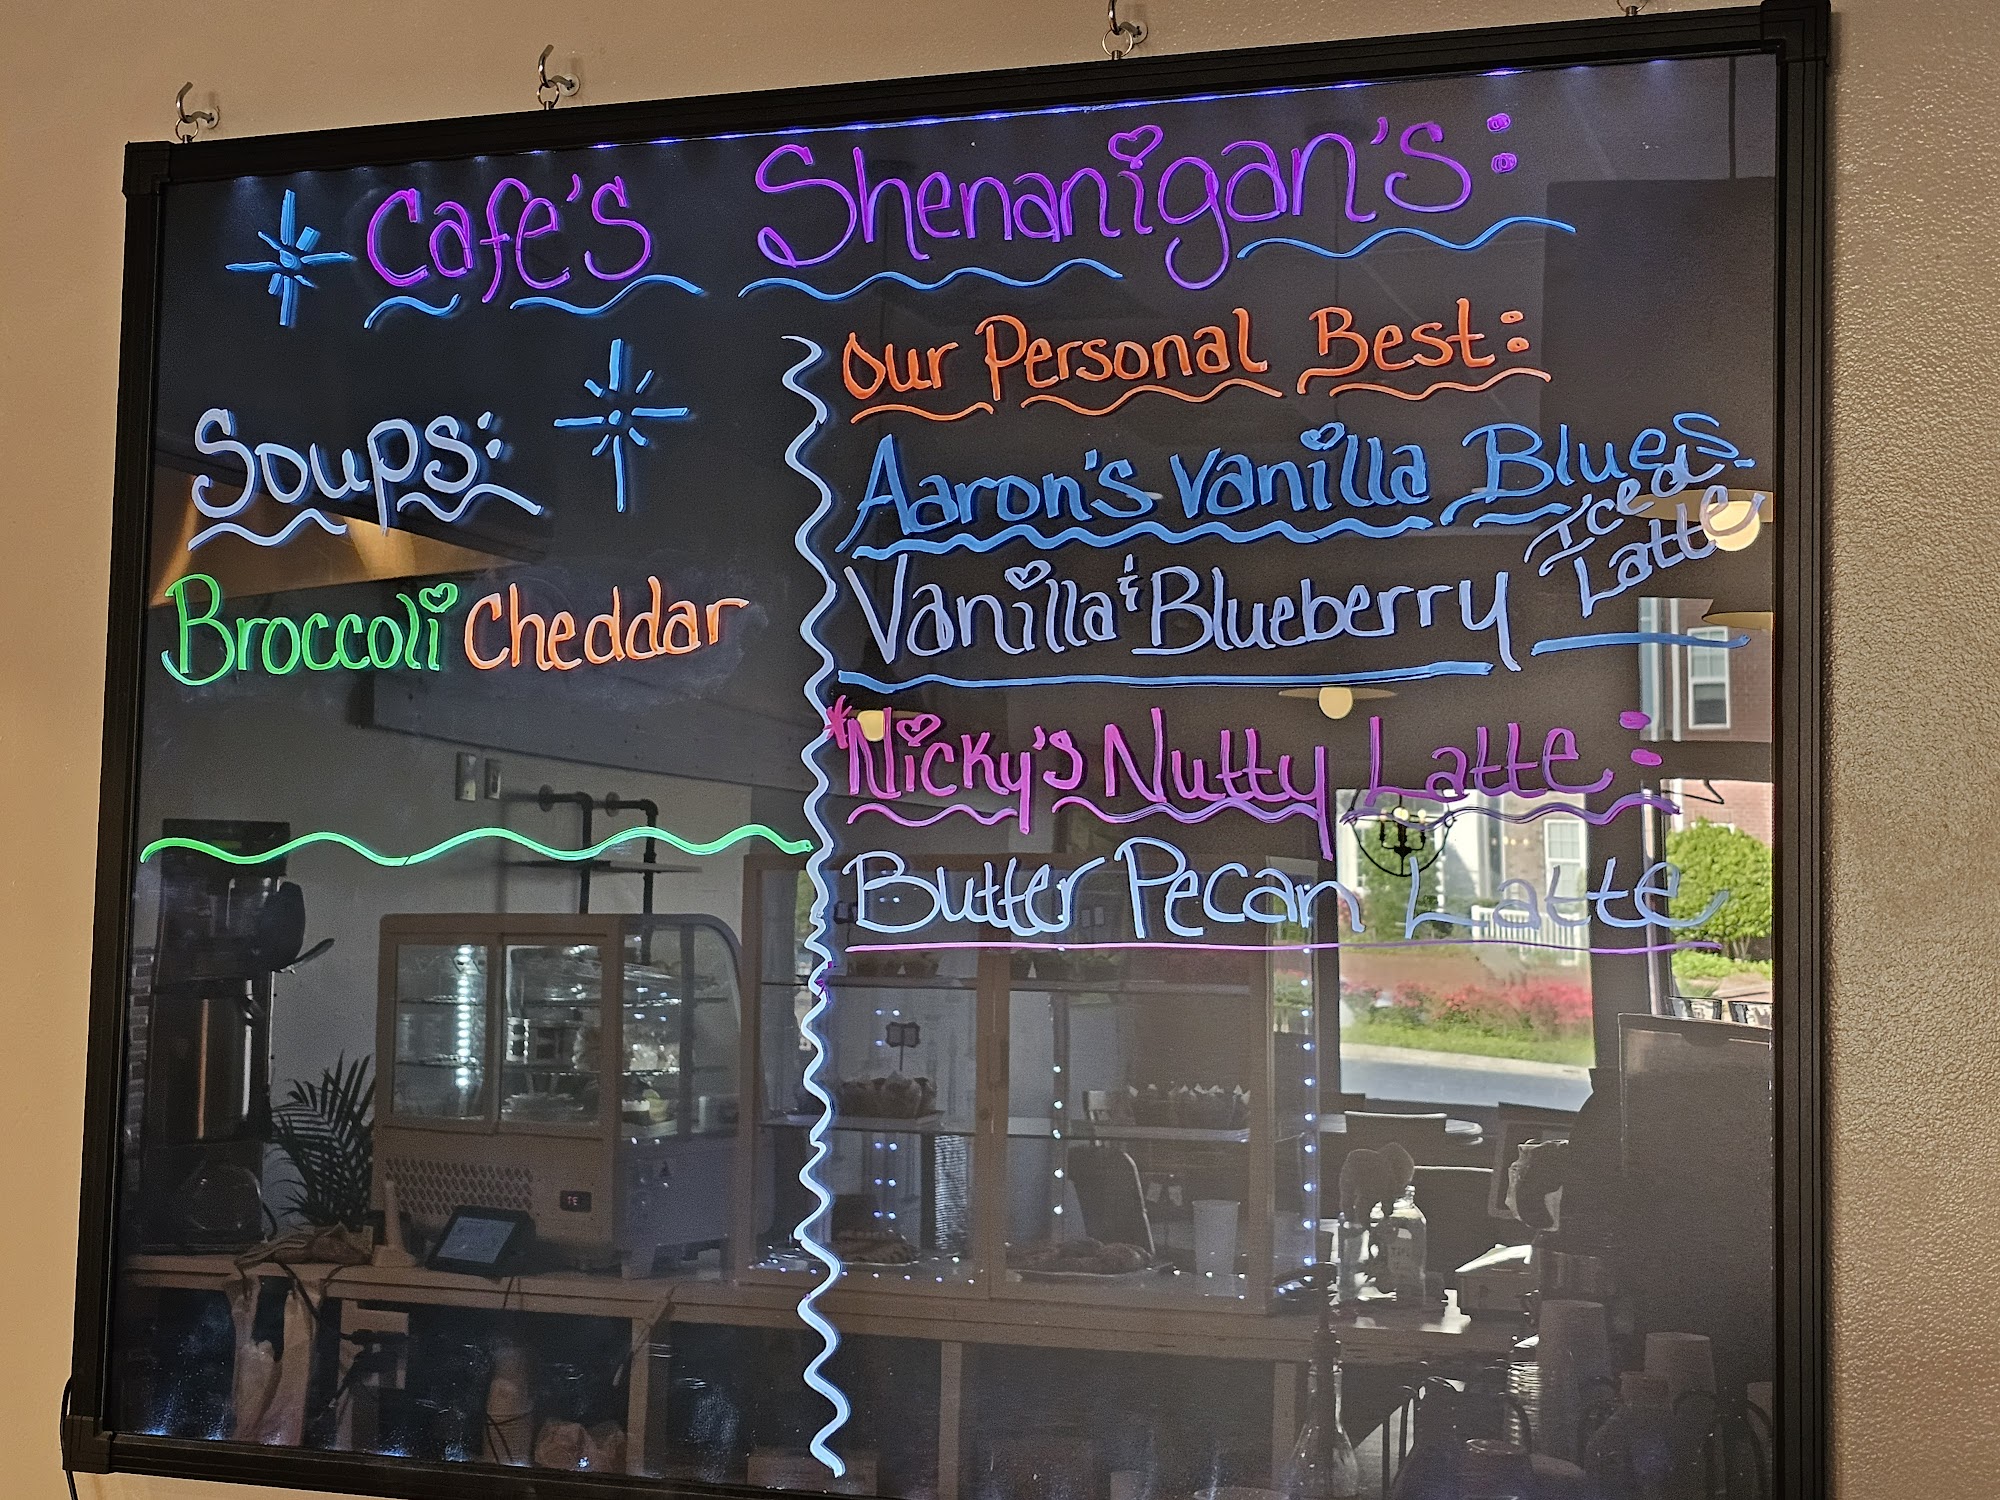 Cafe's Shenanigan's:
Soups:
Broccoli Cheddar
Our Personal Best:
Aaron's Vanilla Blues
Vanilla & Blueberry Iced Latte
*Nicky's Nutty Latte:
Butter Pecan Latte